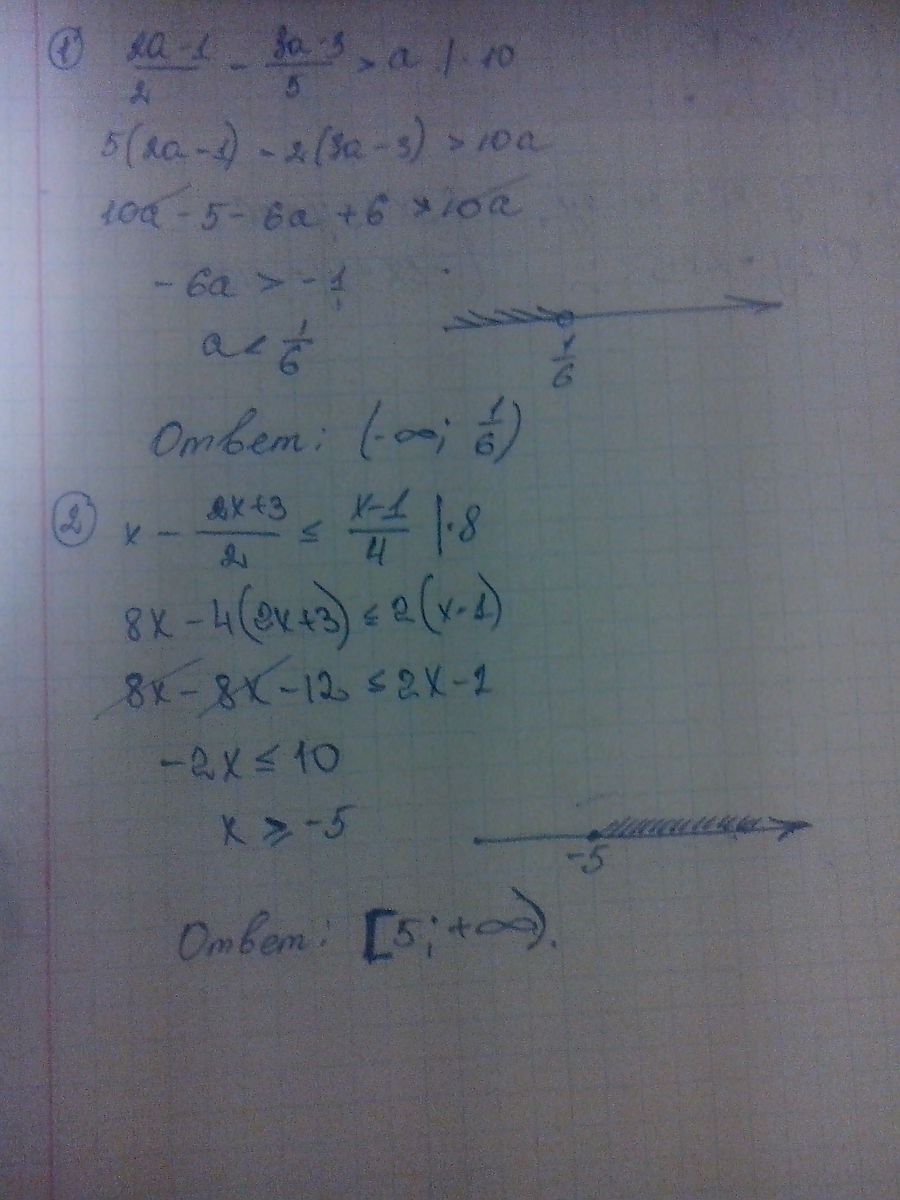 ① (2a-1)/2 - (3a-3)/5 > a | · 10
5(2a-1) - 2(3a-3) > 10a
10a - 5 - 6a + 6 > 10a
-6a > -1
a < 1/6
1/6
Ответ: (-∞; 1/6)
② x - (2x+3)/2 ≤ (x-1)/4 | · 8
8x - 4(2x+3) ≤ 2(x-1)
8x - 8x - 12 ≤ 2x - 2
-2x ≤ 10
x ≥ -5
-5
Ответ: [5; +∞).